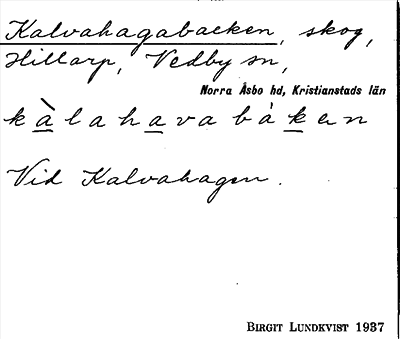 Kalvahagabacken, skog,
Hillarp, Vedby sn,
Norra Åsbo hd, Kristianstads län
kàlahavabàken
Vid Kalvahagen.
BIRGIT LUNDKVIST 1937